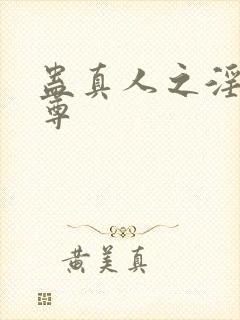 蛊真人之淫
尊
黄美真